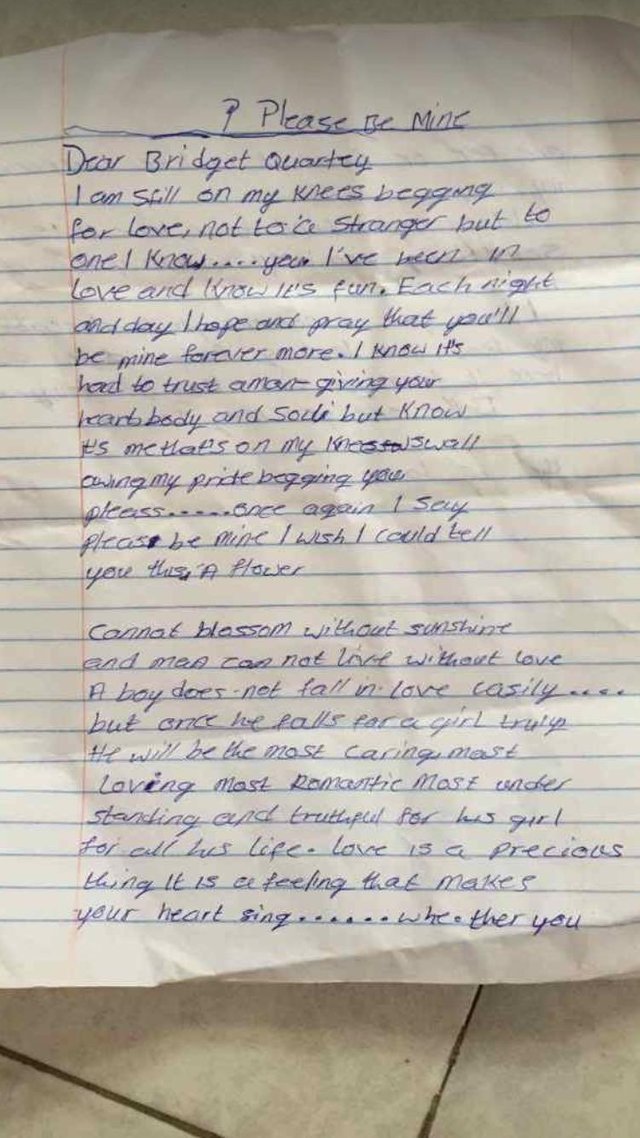 ? Please Be Mine
Dear Bridget Quartey
I am still on my knees begging
for love, not to a stranger but to
one I know....you I've been in
love and I know it's fun. Each night
and day I hope and pray that you'll
be mine forever more. I know it's
hard to trust a man giving your
heart body and soul but know
it's me that's on my knees swall
owing my pride begging you
pleass.....once again I say
please be mine I wish I could tell
you this, A flower
cannot blossom without sunshine
and man can not live without love
A boy does not fall in love easily....
but once he falls for a girl truly
He will be the most caring, most
Loving most Romantic most under
standing and truthful for his girl
for all his life. Love is a precious
thing It is a feeling that makes
your heart sing.......whe.ther you